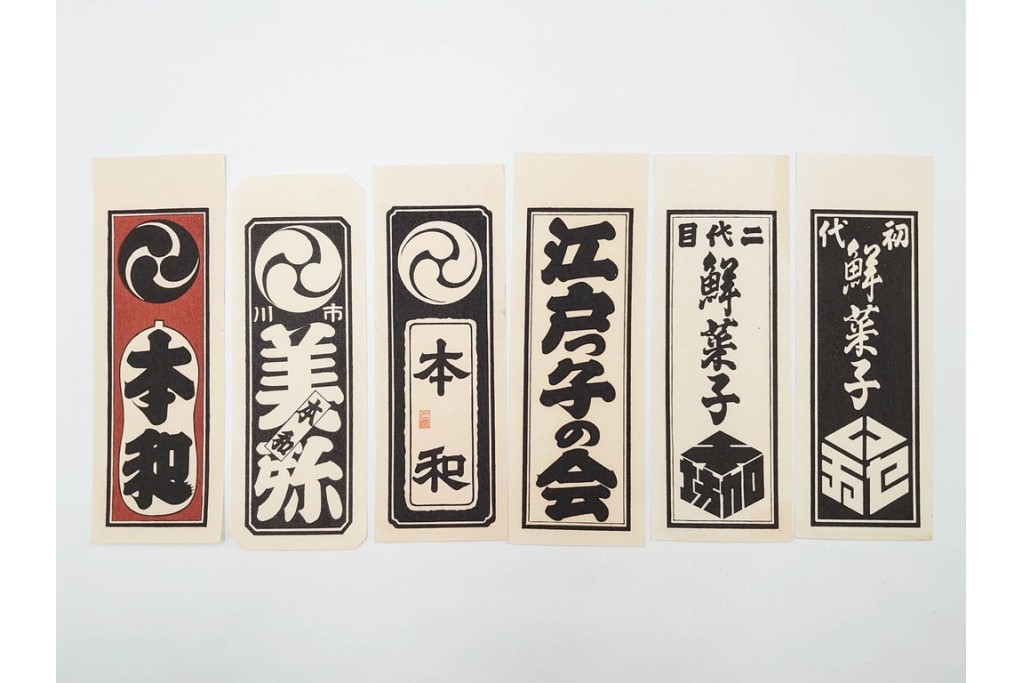 本和
市川
美弥
本和
江戸っ子の会
二代目
鮮菜子
初代
鮮菜子